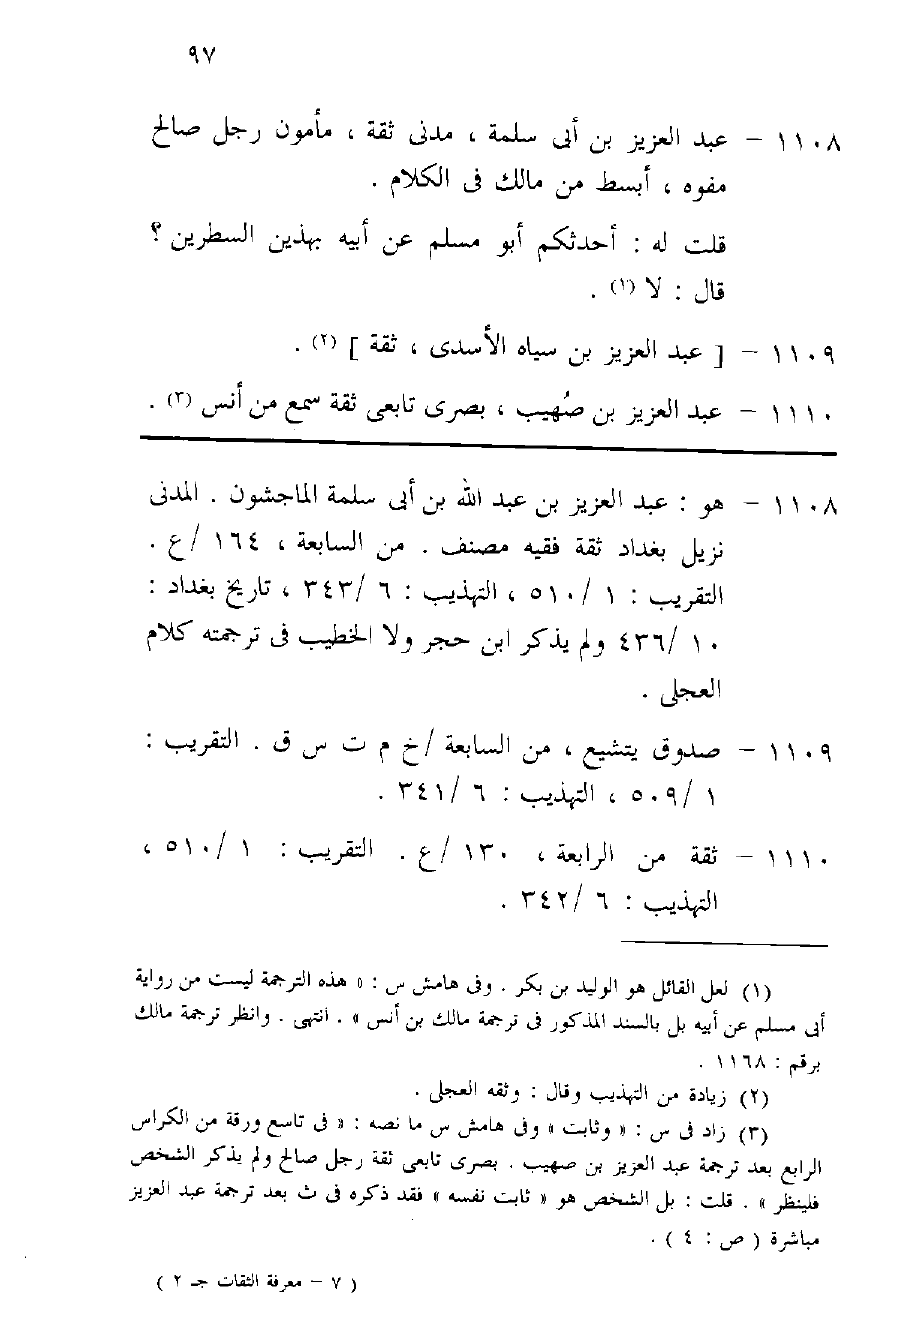 ٩٧
١١٠٨ – عبد العزيز بن أبى سلمة ، مدنى ثقة ، مأمون رجل صالح
مفوه ، أبسط من مالك فى الكلام .
قلت له : أحدثكم أبو مسلم عن أبيه بهذين السطرين ؟
قال : لا (١) .
١١٠٩ – [ عبد العزيز بن سياه الأسدى ، ثقة ] (٢) .
١١١٠ – عبد العزيز بن صُهيب ، بصرى تابعى ثقة سمع من أنس (٣) .
١١٠٨ – هو : عبد العزيز بن عبد الله بن أبى سلمة الماجشون . المدنى
نزيل بغداد ثقة فقيه مصنف . من السابعة ، ١٦٤ /ع .
التقريب : ١ /٥١٠ ، التهذيب : ٦ /٣٤٣ ، تاريخ بغداد :
١٠ /٤٣٦ ولم يذكر ابن حجر ولا الخطيب فى ترجمته كلام
العجلى .
١١٠٩ – صدوق يتشيع ، من السابعة /خ م ت س ق . التقريب :
١ /٥٠٩ ، التهذيب : ٦ /٣٤١ .
١١١٠ – ثقة من الرابعة ، ١٣٠ /ع . التقريب : ١ /٥١٠ ،
التهذيب : ٦ /٣٤٢ .
(١) لعل القائل هو الوليد بن بكر . وفى هامش س : « هذه الترجمة ليست من رواية
أبى مسلم عن أبيه بل بالسند المذكور فى ترجمة مالك بن أنس » . انتهى . وانظر ترجمة مالك
برقم : ١١٦٨ .
(٢) زيادة من التهذيب وقال : وثقه العجلى .
(٣) زاد فى س : « وثابت » وفى هامش س ما نصه : « فى تاسع ورقة من الكراس
الرابع بعد ترجمة عبد العزيز بن صهيب . بصرى تابعى ثقة رجل صالح ولم يذكر الشخص
فلينظر » . قلت : بل الشخص هو « ثابت نفسه » فقد ذكره فى ث بعد ترجمة عبد العزيز
مباشرة ( ص : ٤ ) .
( ٧ – معرفة الثقات جـ ٢ )